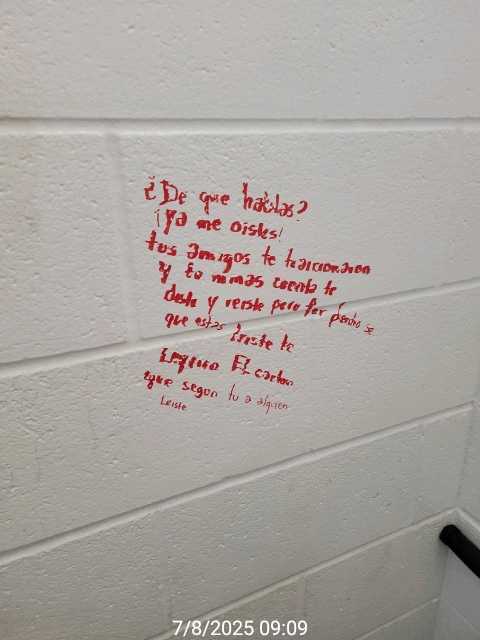 ¿De que hablas?
¡Ya me oistes!
tus amigos te traicionaron
Y tu mamas cuenta te
diste y reiste pero por dentro se
que estas triste te
Llego El carton
que segun tu a alguien
Leiste
7/8/2025 09:09